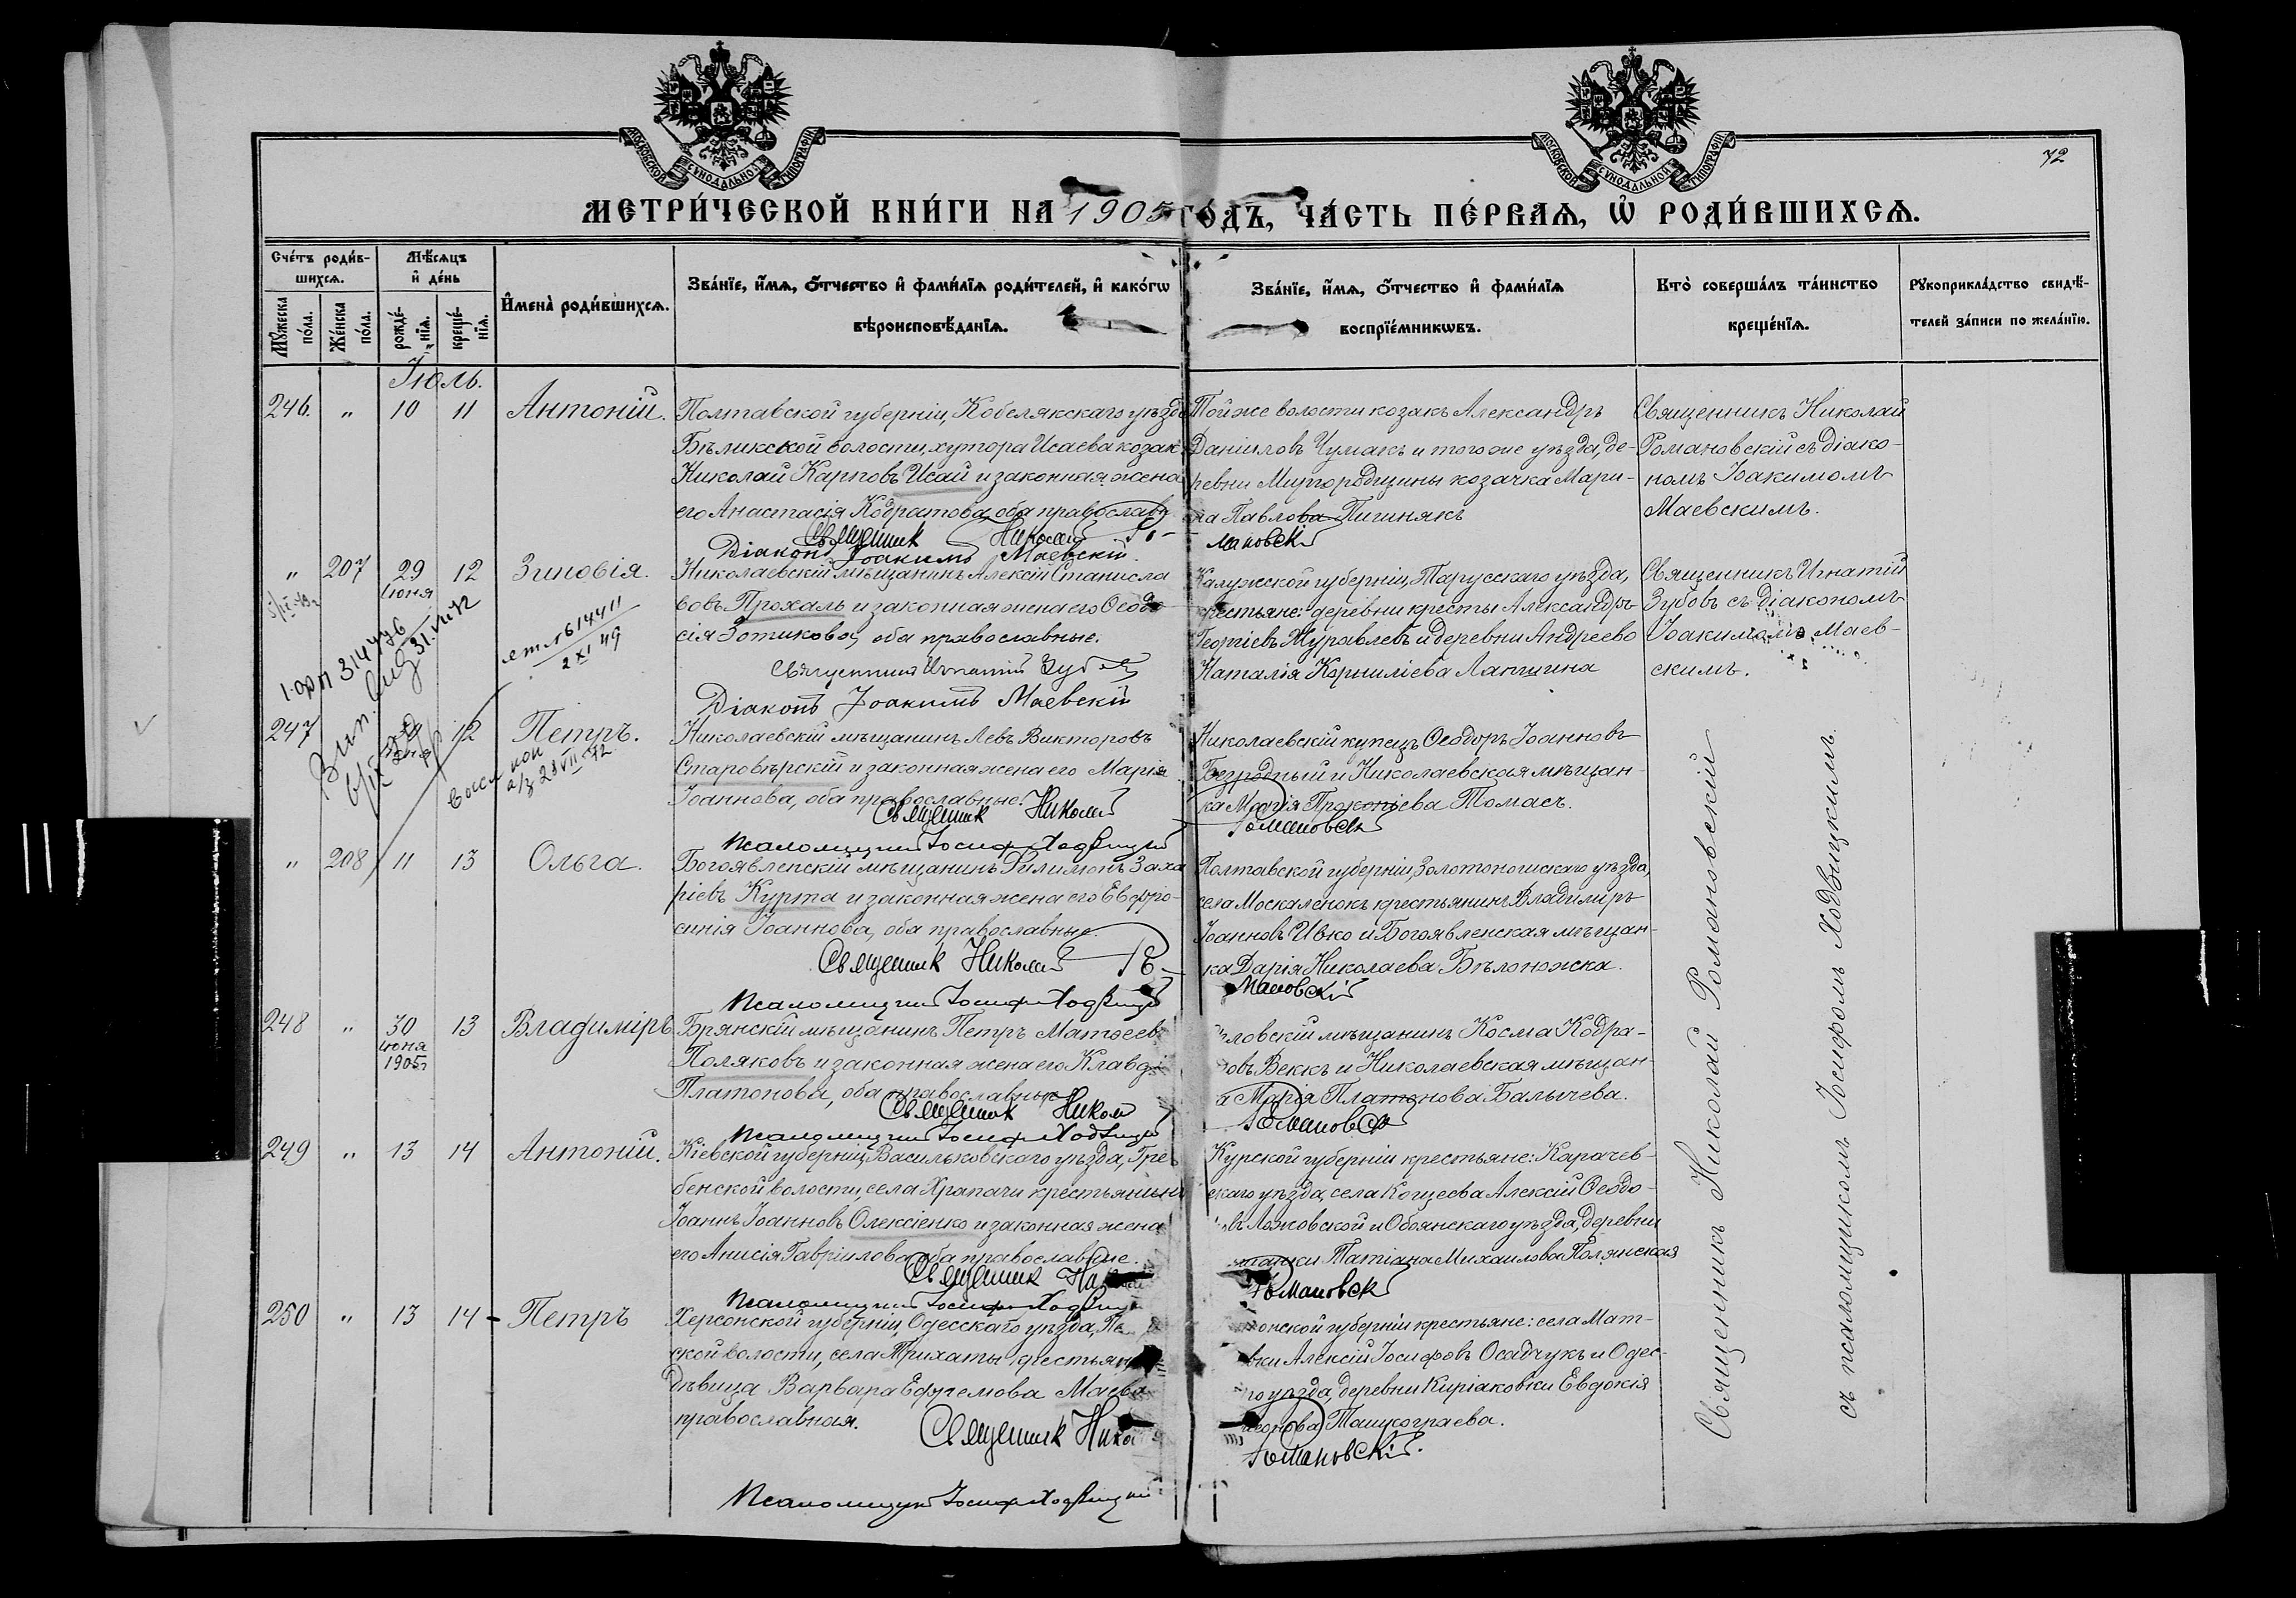 МОСКОВСКОЙ СѴНОДАЛЬНОЙ ТИПОГРАФІИ
МОСКОВСКОЙ СѴНОДАЛЬНОЙ ТИПОГРАФІИ
72
МЕТРИ́ЧЕСКОЙ КНИ́ГИ НА 1905 ГО́ДЪ, ЧА́СТЬ ПЕ́РВАѦ, Ѡ҆ РОДИ́ВШИХСѦ.
Сче́тъ роди́в-
шихсѧ.
Мꙋ́жеска по́ла.
Же́нска по́ла.
Мѣ́сѧцъ
и҆ де́нь
рожде́-
нїѧ.
креще́-
нїѧ.
И҆мена̀ роди́вшихсѧ.
Зва́нїе, и҆́мѧ, ѻ҆́тчество и҆ фами́лїѧ роди́телей, и҆ како́гѡ
вѣроисповѣ́данїѧ.
Зва́нїе, и҆́мѧ, ѻ҆́тчество и҆ фами́лїѧ
воспрїе́мникѡвъ.
Кто̀ соверша́лъ та́инство
креще́нїѧ.
Рꙋкоприкла́дство свидѣ́-
телей за́писи по жела́нїю.
Іюль.
246. " 10 11 Антоній.
Полтавской губерніи, Кобелякскаго уѣзда
Бѣликской волости, хутора Исаева козакъ
Николай Карповъ Исай и законная жена
его Анастасія Кодратова, оба православ
Священник Николай Ро-
Діаконъ Іоакимъ Маевскій.
Той же волости козакъ Александръ
Даниловъ Чумакъ и того же уѣзда, де-
ревни Миргородщины козачка Мари-
на Павлова Пичинякъ
мановскій
Священникъ Николай
Романовскій съ діако-
номъ Іоакимомъ
Маевскимъ.
" 207 29 12 Зиновія.
Іюня
Николаевскій мѣщанинъ Алексій Станисла
вовъ Прохаль и законная жена его Ѳеодо
сія Зотикова, оба православные.
Священникъ Игнатій Зубовъ
Діаконъ Іоакимъ Маевскій
Калужской губерніи, Тарусскаго уѣзда,
крестьяне: деревни кресты Александръ
Георгіевъ Журавлевъ и деревни Андреево
Наталія Корниліева Лапшина
Священникъ Игнатій
Зубовъ съ діакономъ
Іоакимомъ Маев-
скимъ.
314476
31.VII-72
614411
2 XI 49
247 12 Петръ.
23 VII-72
Николаевскій мѣщанинъ Левъ Викторовъ
Старовѣрскій и законная жена его Марія
Іоаннова, оба православные.
Священник Николай
Псаломщикъ Іосифъ Ходвицкій
Николаевскій купецъ Ѳеодоръ Іоанновъ
Безродный и Николаевская мѣщан-
ка Марія Прокопіева Томасъ.
Романовскій
" 208 11 13 Ольга.
Богоявленскій мѣщанинъ Филимонъ Заха
ріевъ Курта и законная жена его Евфро-
синія Іоаннова, оба православные.
Священник Николай Ро-
Псаломщикъ Іосифъ Ходвицкій
Полтавской губерніи, Золотоношскаго уѣзда,
села Москаленокъ крестьянинъ Владиміръ
Іоанновъ Ивко и Богоявленская мѣщан-
ка Дарія Николаева Бѣлоножска.
мановскій
248 " 30 13 Владиміръ
Іюня
1905г
Брянскій мѣщанинъ Петръ Матѳеевъ
Поляковъ и законная жена его Клавді
Платонова, оба православные
Священник Никол
Псаломщикъ Іосифъ Ходвицкій
ловскій мѣщанинъ Косма Кодра-
овъ Веккъ и Николаевская мѣщан-
а Марія Платонова Балычева.
Романовскій
249 " 13 14 Антоній.
Кіевской губерніи, Васильковскаго уѣзда, Гре
бенской волости, села Храпачи крестьянинъ
Іоаннъ Іоанновъ Олексіенко и законная жена
его Анисія Гавріилова, оба православные.
Священник Ни
Псаломщикъ Іосифъ Ходвицкій
Курской губерніи крестьяне: Карачев-
скаго уѣзда, села Кощеева Алексій Ѳеодо-
въ Ложовской и Обоянскаго уѣзда, деревни
Татіана Михаилова Полянская
Романовскій
250 " 13 14 - Петръ
Херсонской губерніи, Одесскаго уѣзда,
ской волости, села Трихаты крестьян
дѣвица Варвара Ефремова Маева
православная.
Священник Нико
Псаломщикъ Іосифъ Ходвицкій
онской губерніи крестьяне: села Мат-
вки Алексій Іосифовъ Осадчукъ и Одес-
го уѣзда, деревни Киріаковки Евдокія
Ташкограева.
Романовскій.
Священникъ Николай Романовскій
съ псаломщикомъ Іосифомъ Ходвицкимъ.